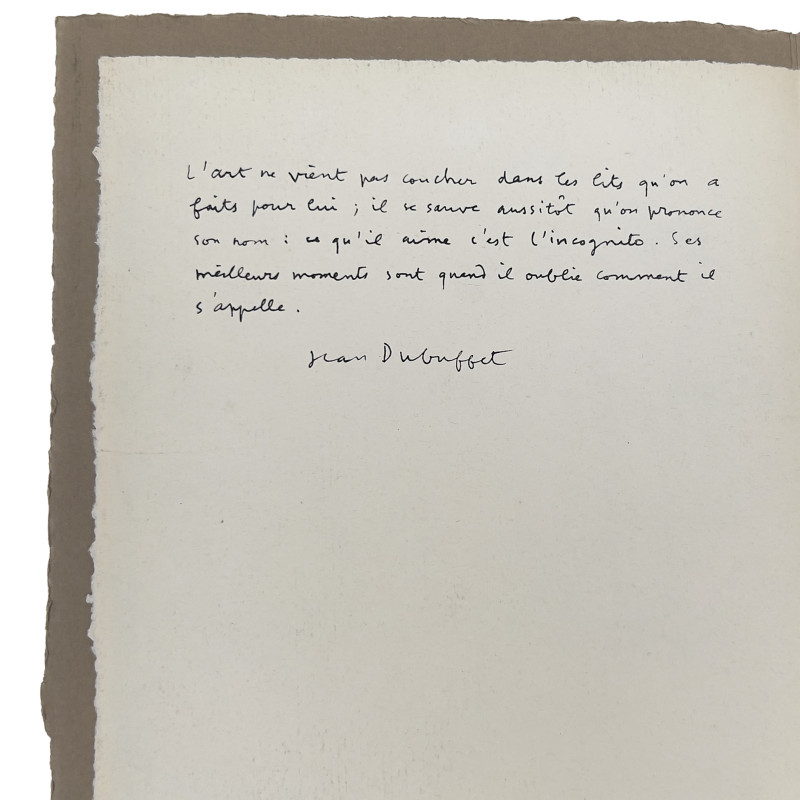 L'art ne vient pas coucher dans les lits qu'on a
faits pour lui ; il se sauve aussitôt qu'on prononce
son nom : ce qu'il aime c'est l'incognito. Ses
meilleurs moments sont quand il oublie comment il
s'appelle.
Jean Dubuffet